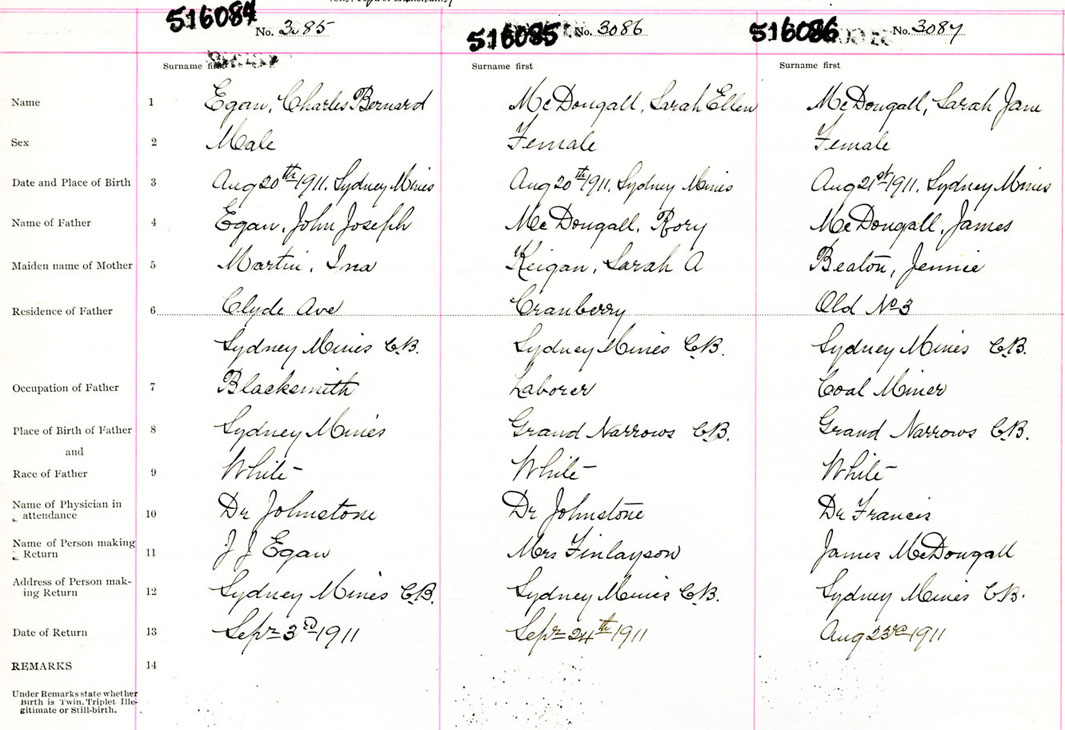 516084 No. 3085 516085 No. 3086 516086 No. 3087
Surname first Surname first Surname first
Name 1 Egan, Charles Bernard McDougall, Sarah Ellen McDougall, Sarah Jane
Sex 2 Male Female Female
Date and Place of Birth 3 Aug 20th 1911, Sydney Mines Aug 20th 1911, Sydney Mines Aug 21st 1911, Sydney Mines
Name of Father 4 Egan, John Joseph McDougall, Rory McDougall, James
Maiden name of Mother 5 Martin, Ina Keigan, Sarah A Beaton, Jennie
Residence of Father 6 Clyde Ave Cranberry Old No 3
Sydney Mines C.B. Sydney Mines C.B. Sydney Mines C.B.
Occupation of Father 7 Blacksmith Laborer Coal Miner
Place of Birth of Father 8 Sydney Mines Grand Narrows C.B. Grand Narrows C.B.
and
Race of Father 9 White White White
Name of Physician in
attendance 10 Dr Johnstone Dr Johnstone Dr Francis
Name of Person making
Return 11 J J Egan Mrs Finlayson James McDougall
Address of Person mak-
ing Return 12 Sydney Mines C.B. Sydney Mines C.B. Sydney Mines C.B.
Date of Return 13 Sepr 3rd 1911 Sepr 24th 1911 Aug 23rd 1911
REMARKS 14
Under Remarks state whether
Birth is Twin, Triplet Ille-
gitimate or Still-birth.